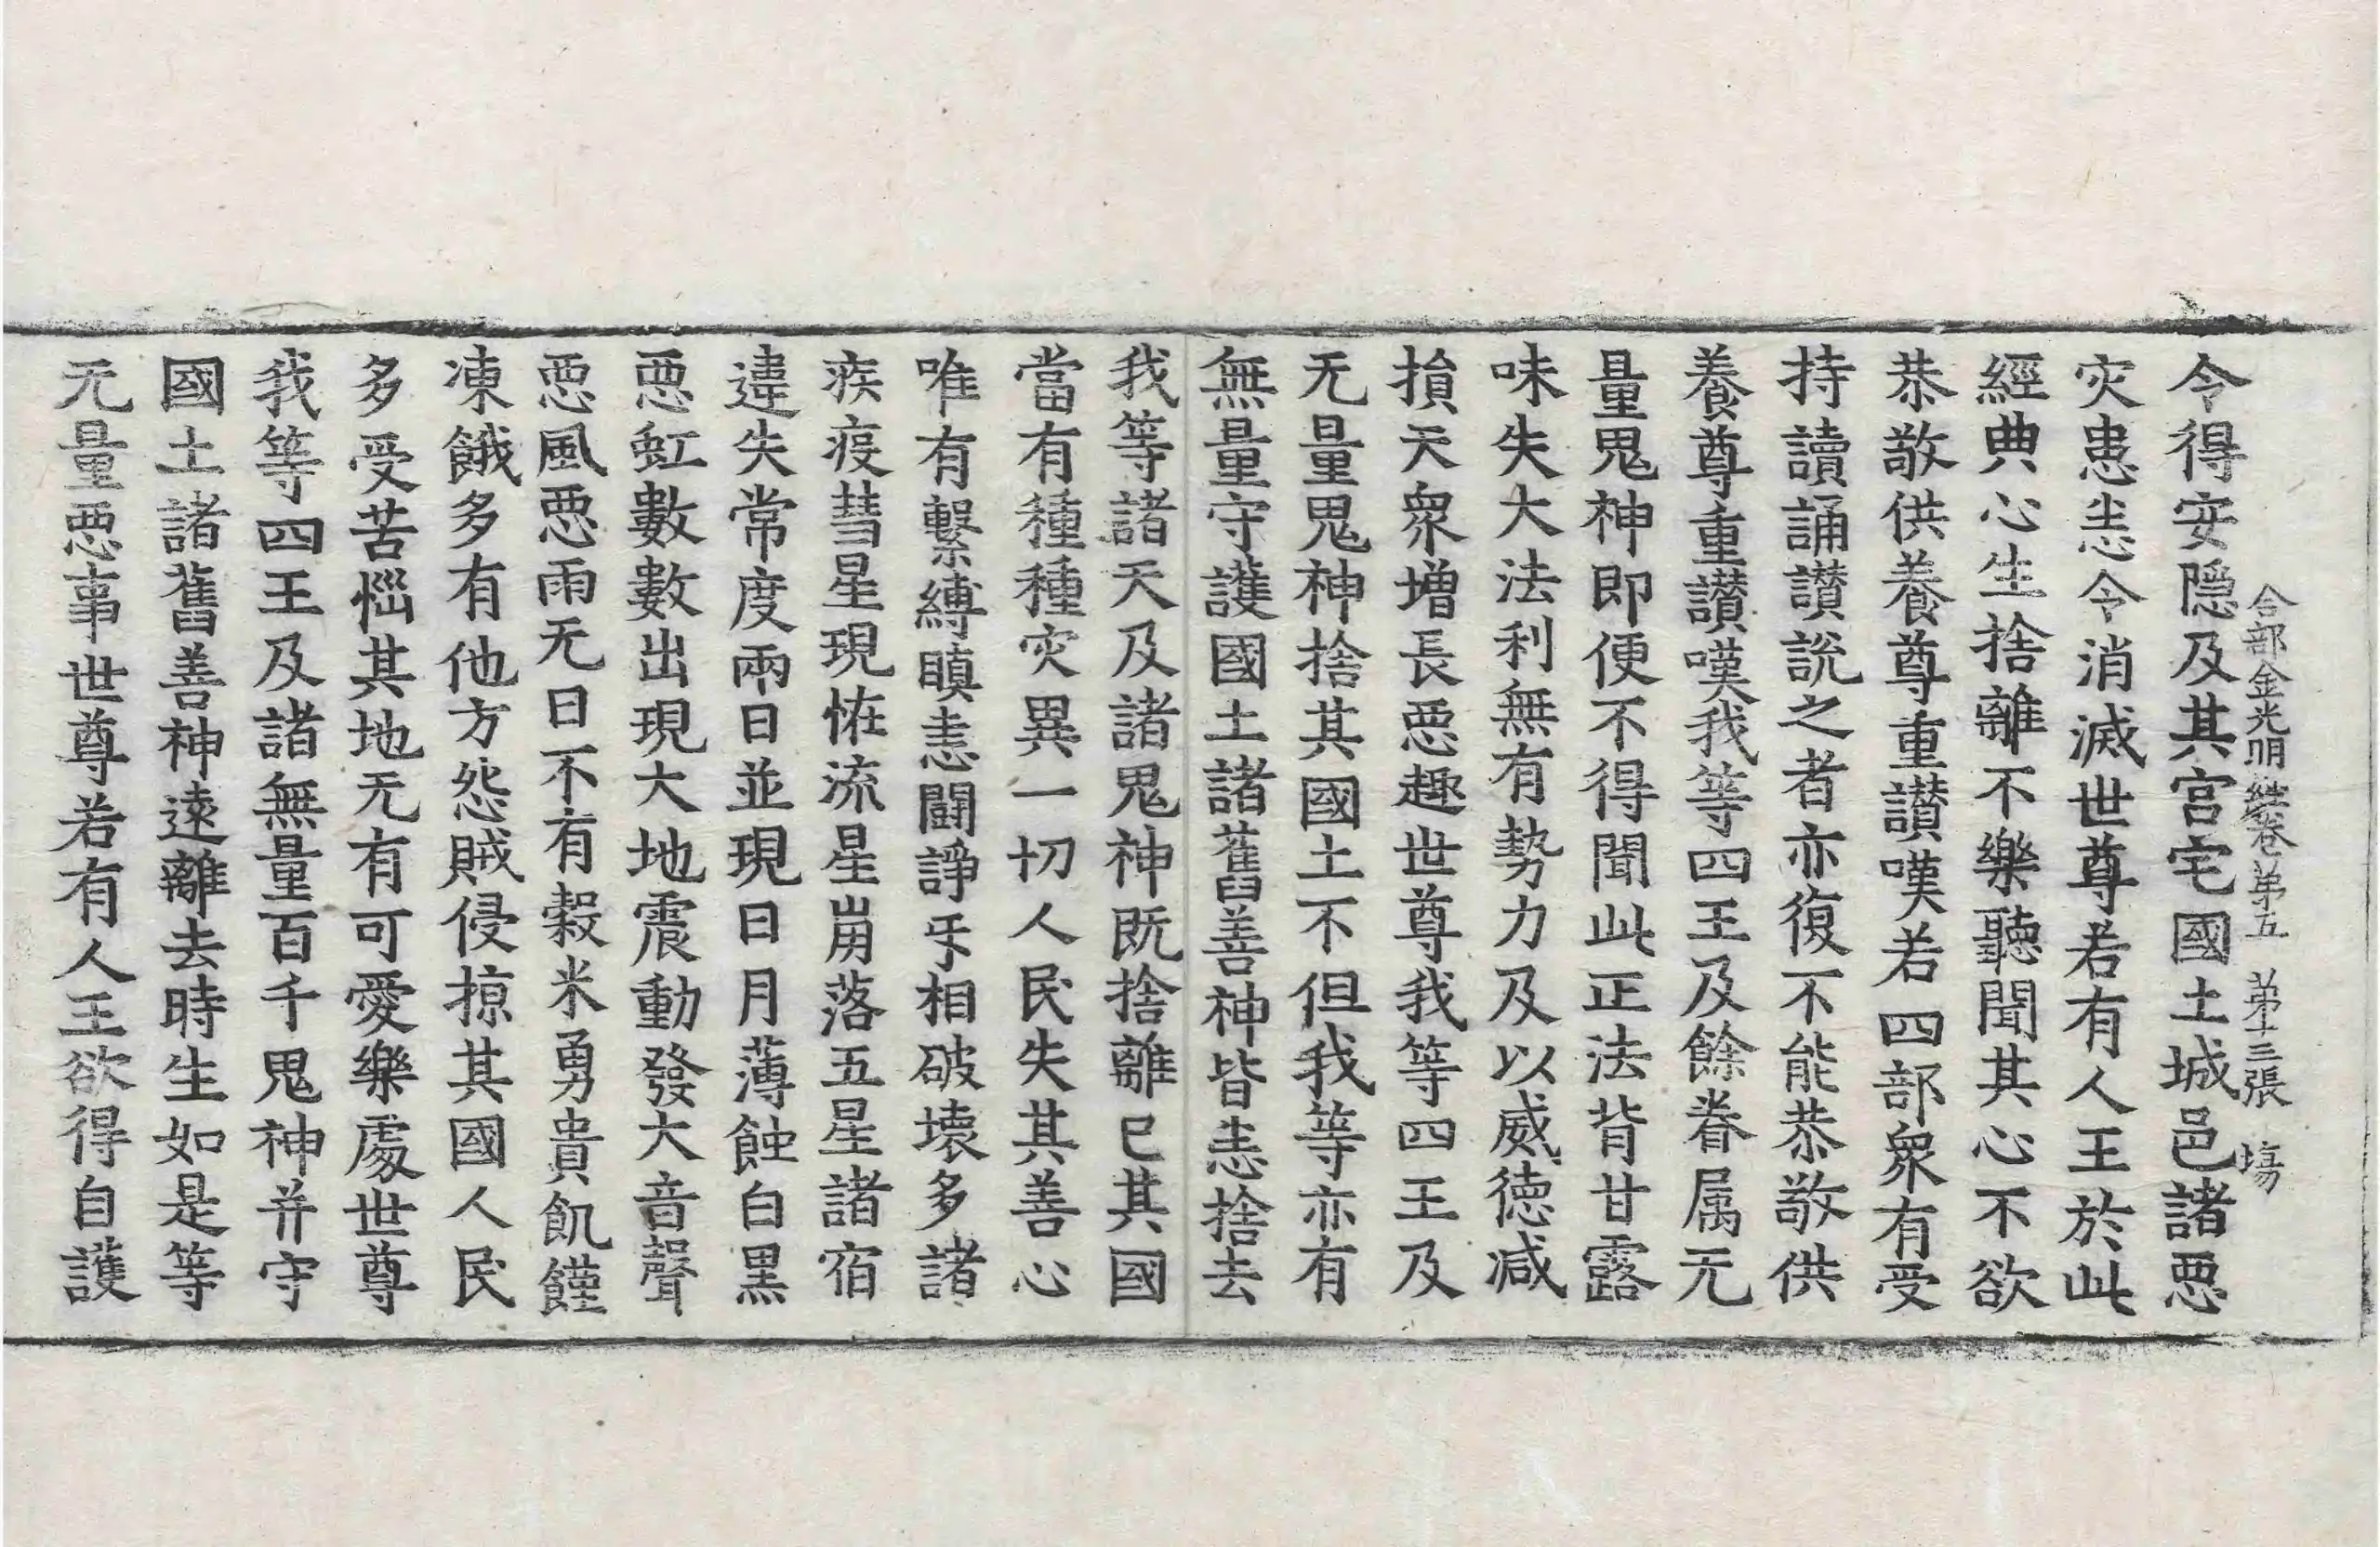 合部金光明經卷第五　第十三張　塲
令得安隱及其宮宅國土城邑諸惡
灾患悉令消滅世尊若有人王於此
經典心生捨離不樂聽聞其心不欲
恭敬供養尊重讃嘆若四部衆有受
持讀誦讃說之者亦復不能恭敬供
養尊重讃嘆我等四王及餘眷属无
量鬼神即便不得聞此正法背甘露
味失大法利無有勢力及以威德减
損天衆增長惡趣世尊我等四王及
无量鬼神捨其國土不但我等亦有
無量守護國土諸舊善神皆悉捨去
我等諸天及諸鬼神既捨離已其國
當有種種灾異一切人民失其善心
唯有繫縛瞋恚鬪諍互相破壞多諸
疾疫彗星現恠流星崩落五星諸宿
違失常度兩日並現日月薄蝕白黑
惡虹數數出現大地震動發大音聲
惡風惡雨无日不有穀米勇貴飢饉
凍餓多有他方怨賊侵掠其國人民
多受苦惱其地无有可愛樂處世尊
我等四王及諸無量百千鬼神并守
國土諸舊善神遠離去時生如是等
无量惡事世尊若有人王欲得自護